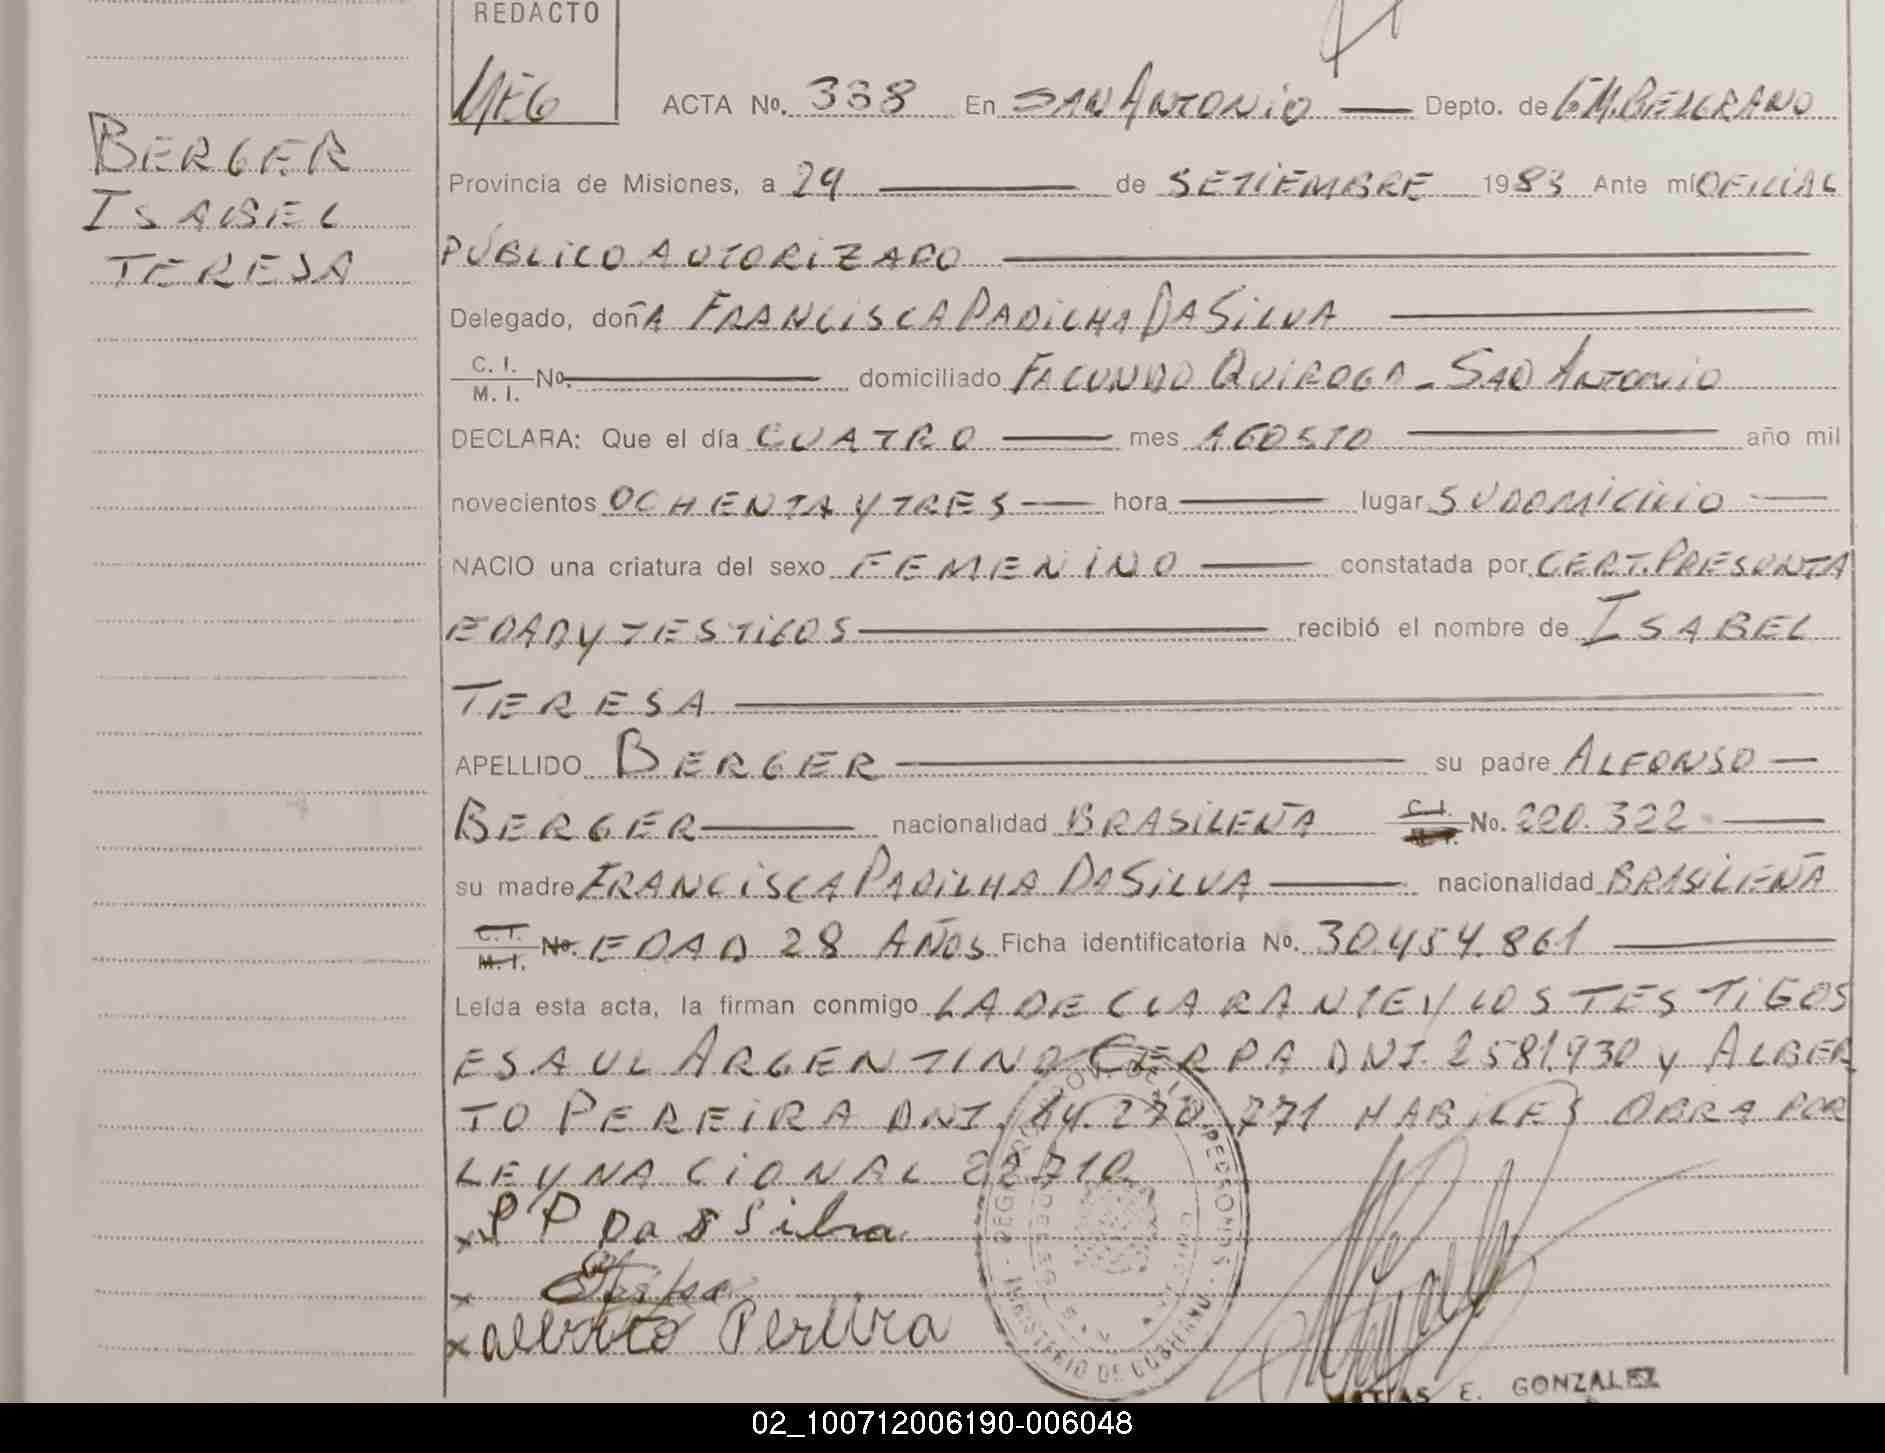 REDACTO
ACTA No. 338 En SAN ANTONIO Depto. de GM. BELGRANO
BERGER
ISABEL
TERESA
Provincia de Misiones, a 29 de SETIEMBRE 1983 Ante mí OFICIAL
PÚBLICO AUTORIZADO
Delegado, doñA FRANCISCA PADILHA DA SILVA
C. I.
M. I. No. domiciliado FACUNDO QUIROGA - SAO ANTONIO
DECLARA: Que el día CUATRO mes AGOSTO año mil
novecientos OCHENTA Y TRES hora lugar SU DOMICILIO
NACIO una criatura del sexo FEMENINO constatada por CERT. PRESUNTA
EDAD Y TESTIGOS recibió el nombre de ISABEL
TERESA
APELLIDO BERGER su padre ALFONSO
BERGER nacionalidad BRASILEÑA C. I. M. I. No. 220.322
su madre FRANCISCA PADILHA DA SILVA nacionalidad BRASILEÑA
C. I. M. I. No. EDAD 28 AÑOS Ficha identificatoria No. 30.454.861
Leída esta acta, la firman conmigo LA DECLARANTE Y LOS TESTIGOS
ESAUL ARGENTINO CERPA DNI. 2581.930 y ALBER
TO PEREIRA DNI. 14.270.771 HABILES OBRA POR
LEY NACIONAL 22710
x P P Da S Silva
x
x alberto Pereira
MINISTERIO DE GOBIERNO
MATIAS E. GONZALEZ
02_100712006190-006048